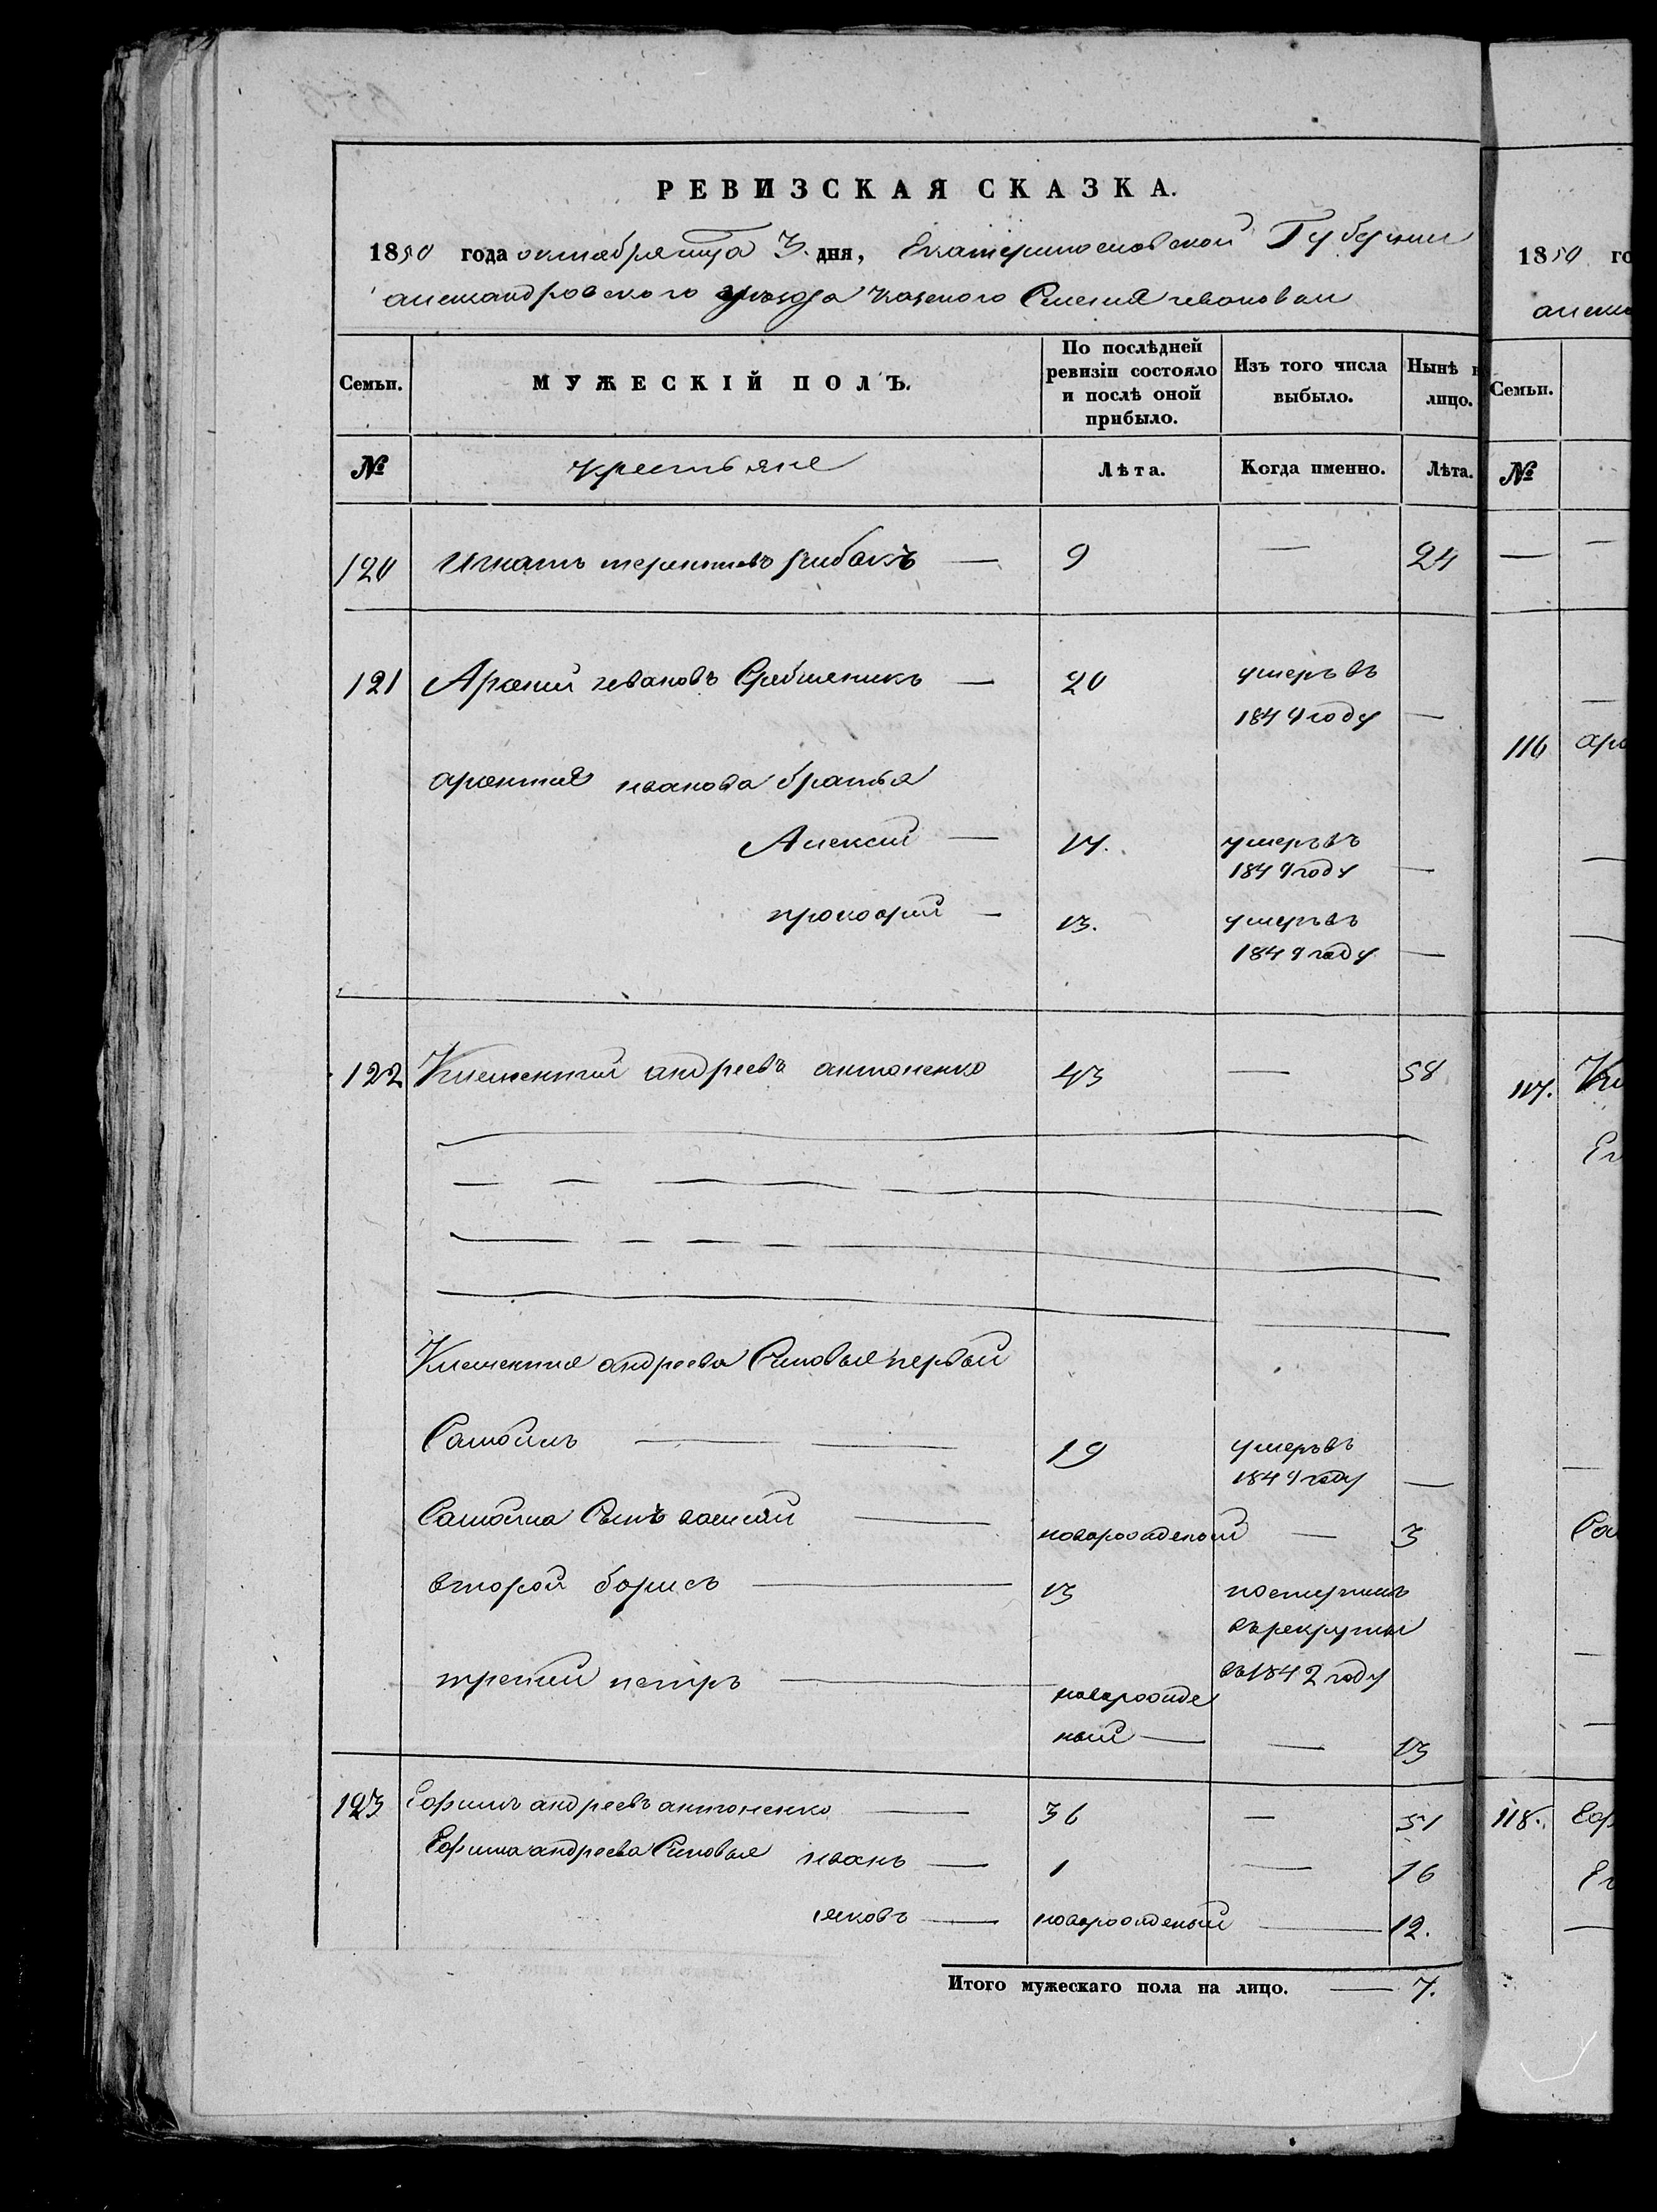 РЕВИЗСКАЯ СКАЗКА.
1850 года октября мца 3. дня, Екатеринославской Губернии
александровского уезда казеного Селения ивановки
Семьи.
МУЖЕСКІЙ ПОЛЪ.
По послѣдней ревизіи состояло и послѣ оной прибыло.
Изъ того числа выбыло.
Нынѣ
лицо.
№
крестьяне
Лѣта.
Когда именно.
Лѣта.
120 игнатъ терентиевъ рибакъ — 9 — 24
121 ивановъ — 20 умеръ въ
1849 году —
иванова братья
Алексей — 17. умеръ въ
1849 году —
прокофий — 13. умеръ въ
1849 году —
122 Климентий андреевъ антоненко 43 — 58
Климентия андреева Синовья первый
Самойлъ — 19 умеръ въ
1849 году —
Самойла Сынъ василий — новорожденый — 3
второй борисъ — 13 поступилъ
в рекруты
въ 1842 году
третий петръ — новорожде
ный — — 13
123 Ефимъ андреевъ антоненко — 36 — 51
Ефима андреева Синовья иванъ — 1 — 16
яковъ — новорожденый — 12.
Итого мужескаго пола на лицо. — 7.
1850 го
Семьи.
№
116
117.
118. Еф